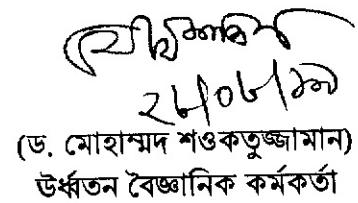 ২৮/০৮/১৯
(ড. মোহাম্মদ শওকতুজ্জামান)
ঊর্ধ্বতন বৈজ্ঞানিক কর্মকর্তা